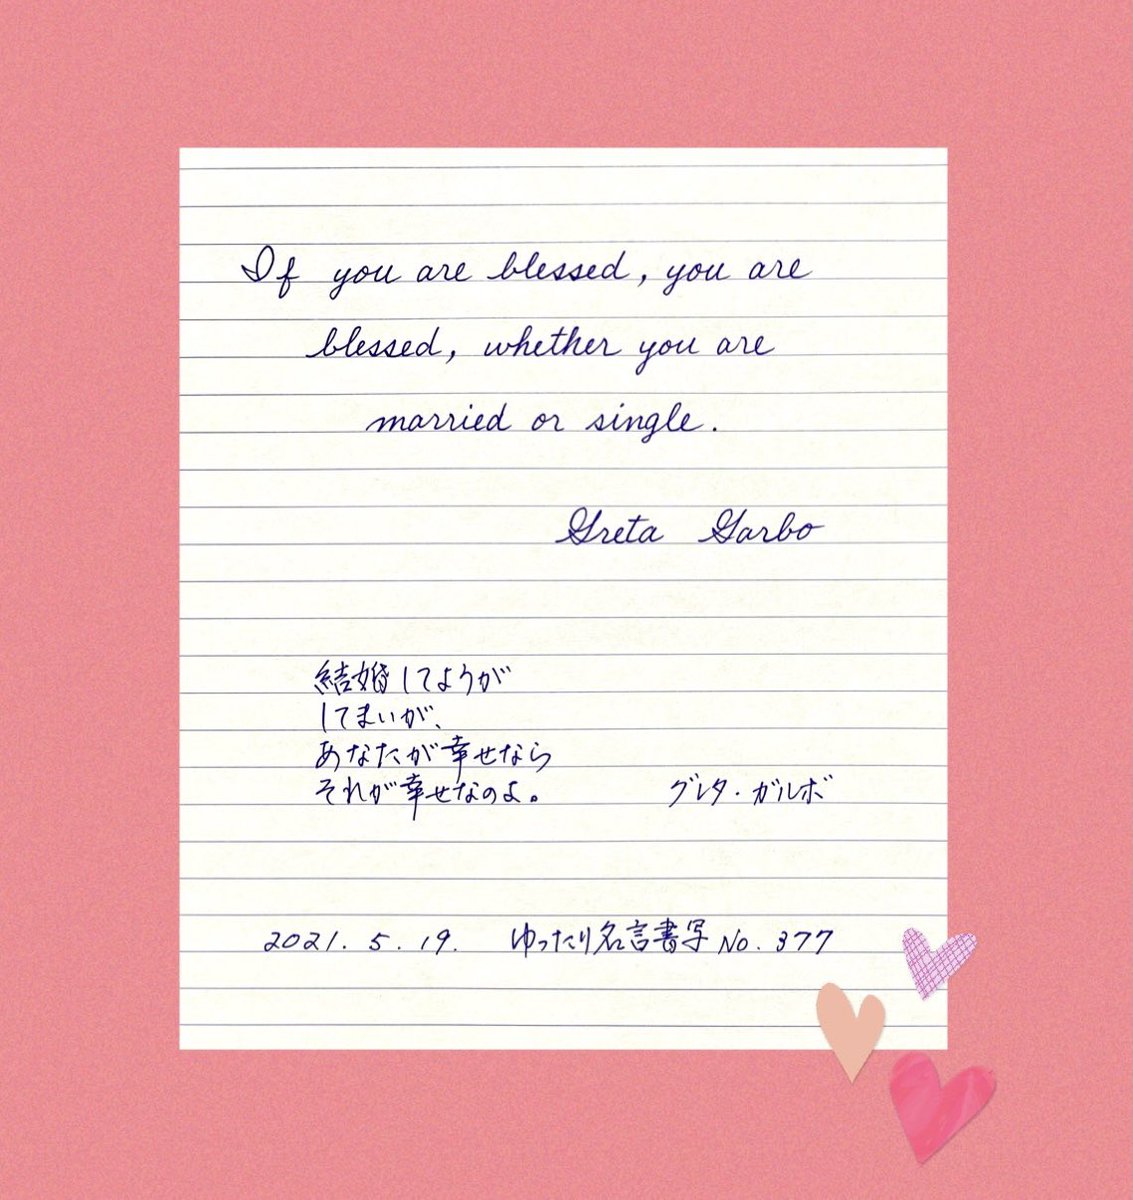 If you are blessed, you are
blessed, whether you are
married or single.
Greta Garbo
結婚してようが
してまいが、
あなたが幸せなら
それが幸せなのよ。 グレタ・ガルボ
2021. 5. 19. ゆったり名言書写 No. 377